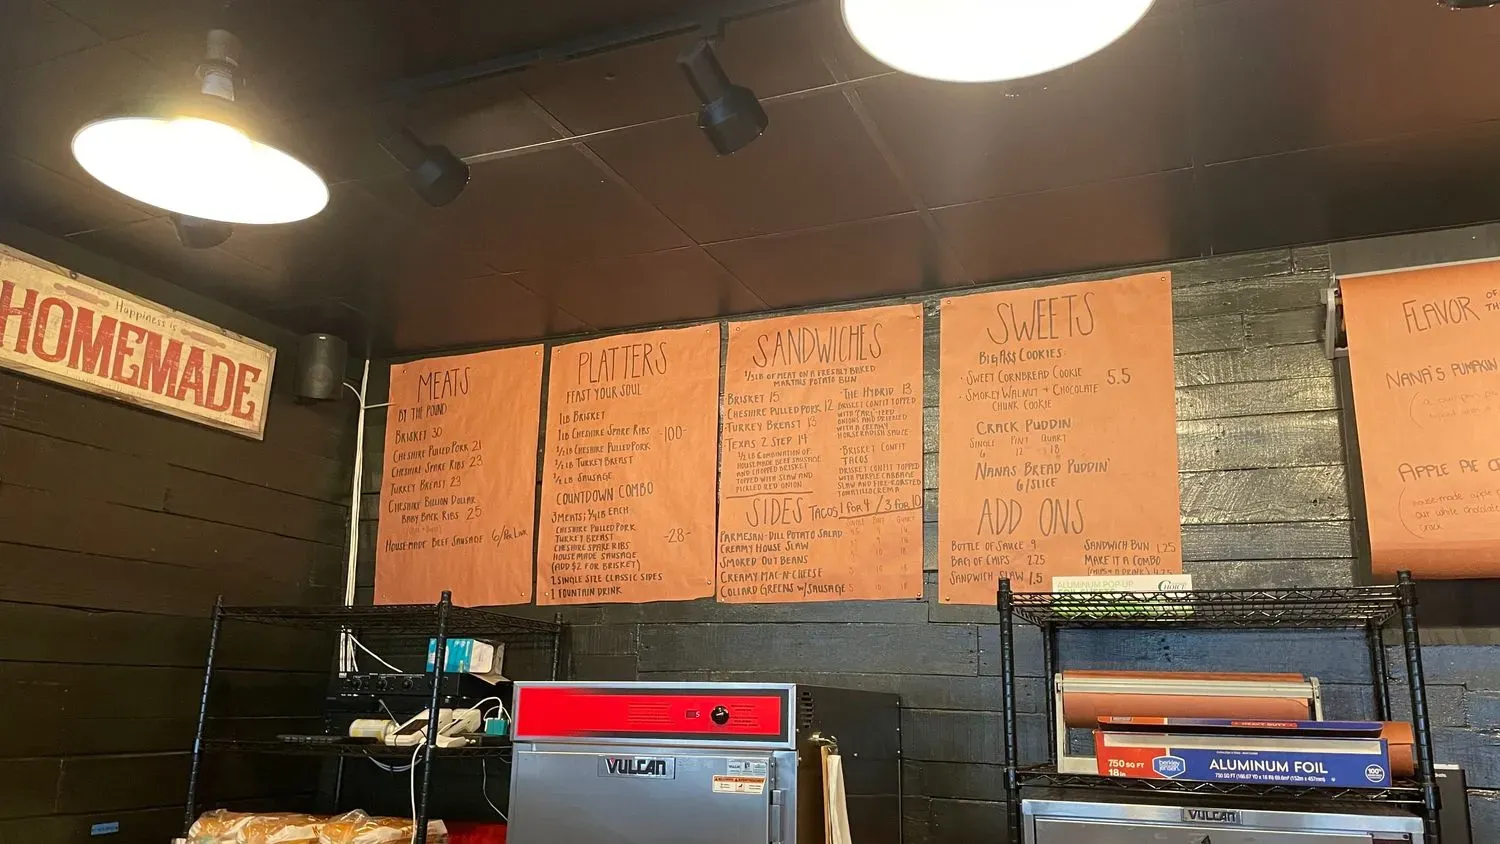 Happiness is
HOMEMADE
MEATS
BY THE POUND
BRISKET 30
CHESHIRE PULLED PORK 21
CHESHIRE SPARE RIBS 23
TURKEY BREAST 23
CHESHIRE BILLION DOLLAR
BABY BACK RIBS 25
HOUSEMADE BEEF SAUSAGE 6/PER LINK
PLATTERS
FEAST YOUR SOUL
1LB BRISKET
1LB CHESHIRE SPARE RIBS -100-
1/2 LB CHESHIRE PULLED PORK
1/2 LB TURKEY BREAST
LB SAUSAGE
COUNTDOWN COMBO
3 MEATS; 1/4LB EACH
CHESHIRE PULLED PORK
TURKEY BREAST
CHESHIRE SPARE RIBS -28-
HOUSEMADE SAUSAGE
(ADD $2 FOR BRISKET)
2 SINGLE SIZE CLASSIC SIDES
1 FOUNTAIN DRINK
SANDWICHES
1/3 LB OF MEAT ON A FRESHLY BAKED
MARTINS POTATO BUN
BRISKET 15
CHESHIRE PULLED PORK 12
TURKEY BREAST 13
TEXAS 2 STEP 14
1/2 LB COMBINATION OF
HOUSEMADE BEEF SAUSAGE
AND CHOPPED BRISKET
TOPPED WITH SLAW AND
PICKLED RED ONION
THE HYBRID 13
BRISKET CONFIT TOPPED
WITH FRIED
ONIONS AND DRIZZLED
WITH A CREAMY
HORSERADISH SAUCE
BRISKET CONFIT
TACOS
BRISKET CONFIT TOPPED
WITH PURPLE CABBAGE
SLAW AND FIRE-ROASTED
TOMATILLO CREMA
TACOS 1 FOR 4 / 3 FOR 10
SIDES
SINGLE PINT QUART
PARMESAN-DILL POTATO SALAD
CREAMY HOUSE SLAW
SMOKED OUT BEANS
CREAMY MAC-N-CHEESE
COLLARD GREENS W/SAUSAGE
SWEETS
BIGA$$ COOKIES
• SWEET CORNBREAD COOKIE 5.5
• SMOKEY WALNUT + CHOCOLATE
CHUNK COOKIE
CRACK PUDDIN
SINGLE PINT QUART
6 12 18
NANAS BREAD PUDDIN'
6/SLICE
ADD ONS
BOTTLE OF SAUCE 9
BAG OF CHIPS 2.25
SANDWICH SLAW 1.5
SANDWICH BUN 1.25
MAKE IT A COMBO
(CHIPS + A DRINK) 4.25
FLAVOR OF
TH
NANA'S PUMPKIN
APPLE PIE
ALUMINUM POP-UP
Choice
VULCAN
HEAVY DUTY
750 SQ FT
18 in
berkley jensen
ALUMINUM FOIL
100%
VULCAN